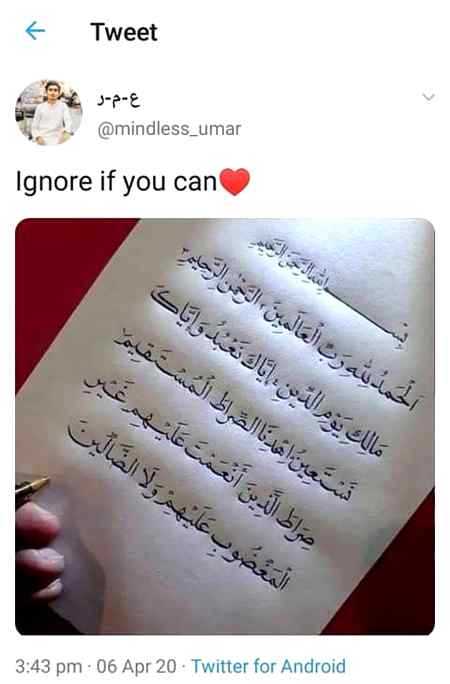 Tweet
ع-م-ر
@mindless_umar
Ignore if you can❤️
بِسْمِ اللهِ الرَّحْمٰنِ الرَّحِيمِ
اَلْحَمْدُ لِلّٰهِ رَبِّ الْعَالَمِينَ، الرَّحْمٰنِ الرَّحِيمِ،
مَالِكِ يَوْمِ الدِّينِ، إِيَّاكَ نَعْبُدُ وَإِيَّاكَ
نَسْتَعِينُ، اِهْدِنَا الصِّرَاطَ الْمُسْتَقِيمَ
صِرَاطَ الَّذِينَ أَنْعَمْتَ عَلَيْهِمْ غَيْرِ
الْمَغْضُوبِ عَلَيْهِمْ وَلَا الضَّالِّينَ
3:43 pm · 06 Apr 20 · Twitter for Android